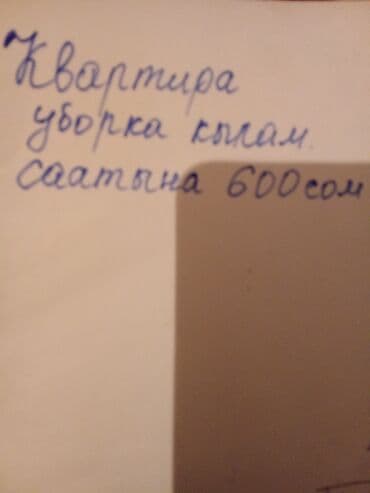 Квартира
уборка кылам.
саатына 600 сом